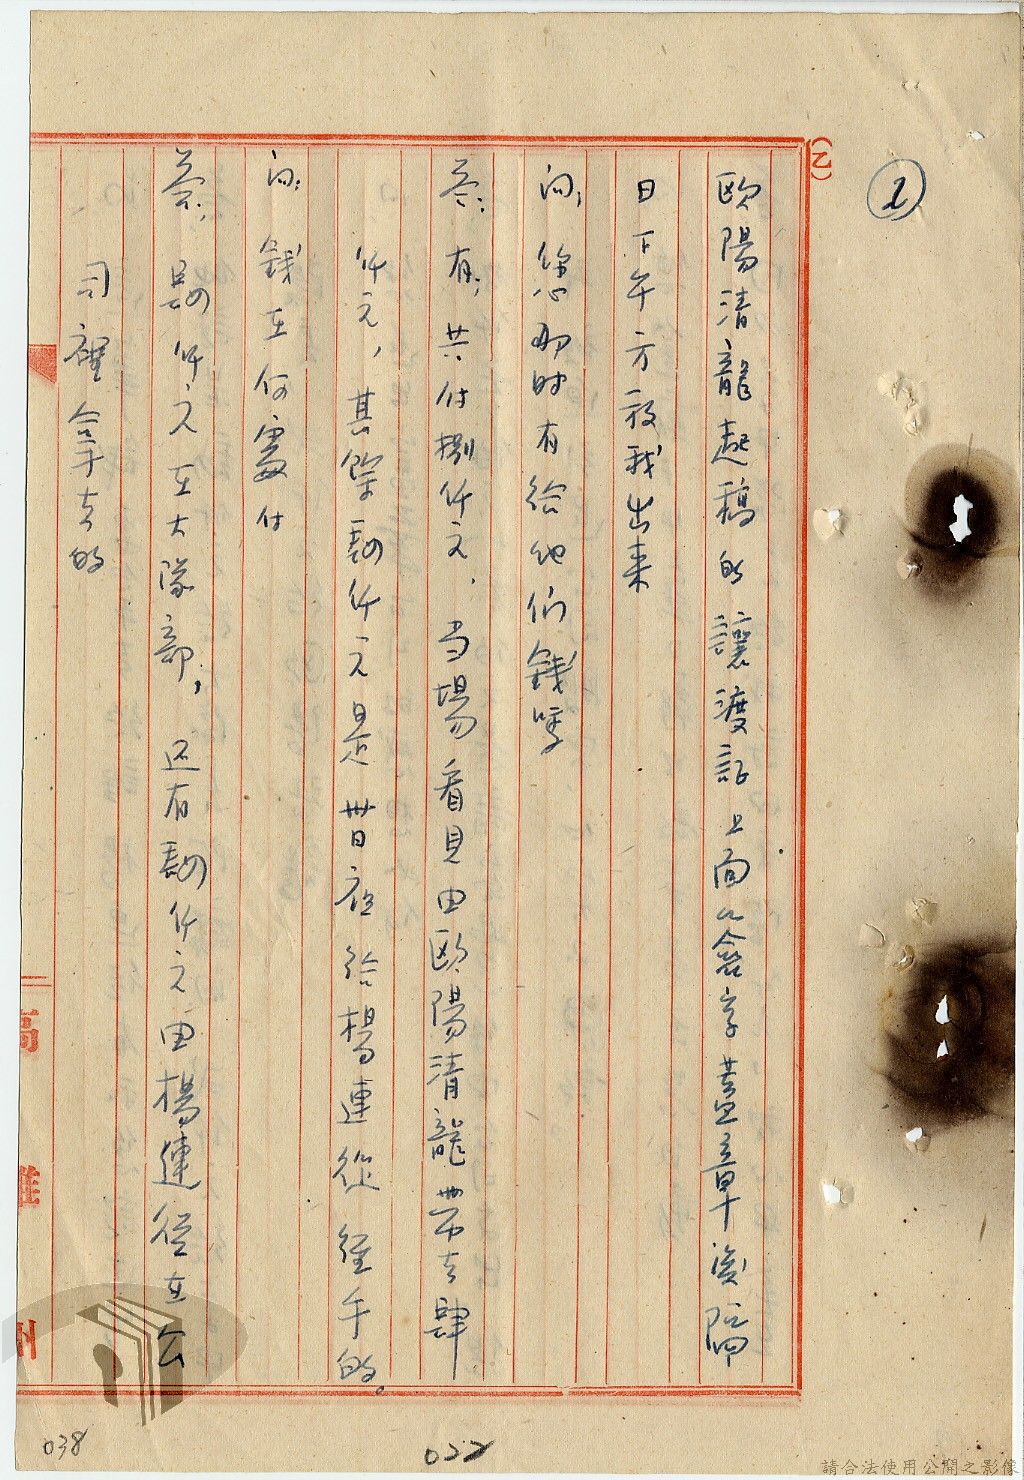 (乙)
2
欧陽清龍起稿的讓渡証上面簽字蓋章後隔
日下午方放我出来
问：您那时有给他们錢呀
答：有；共付捌仟元，当場看見由欧陽清龍帶去肆
仟元，其餘肆仟元是卅日夜给楊連從經手的。
问：錢在何處付
答：肆仟元在大隊部，还有肆仟元由楊連從在公
司裡拿去的
高
雄
州
038
022
請合法使用公開之影像